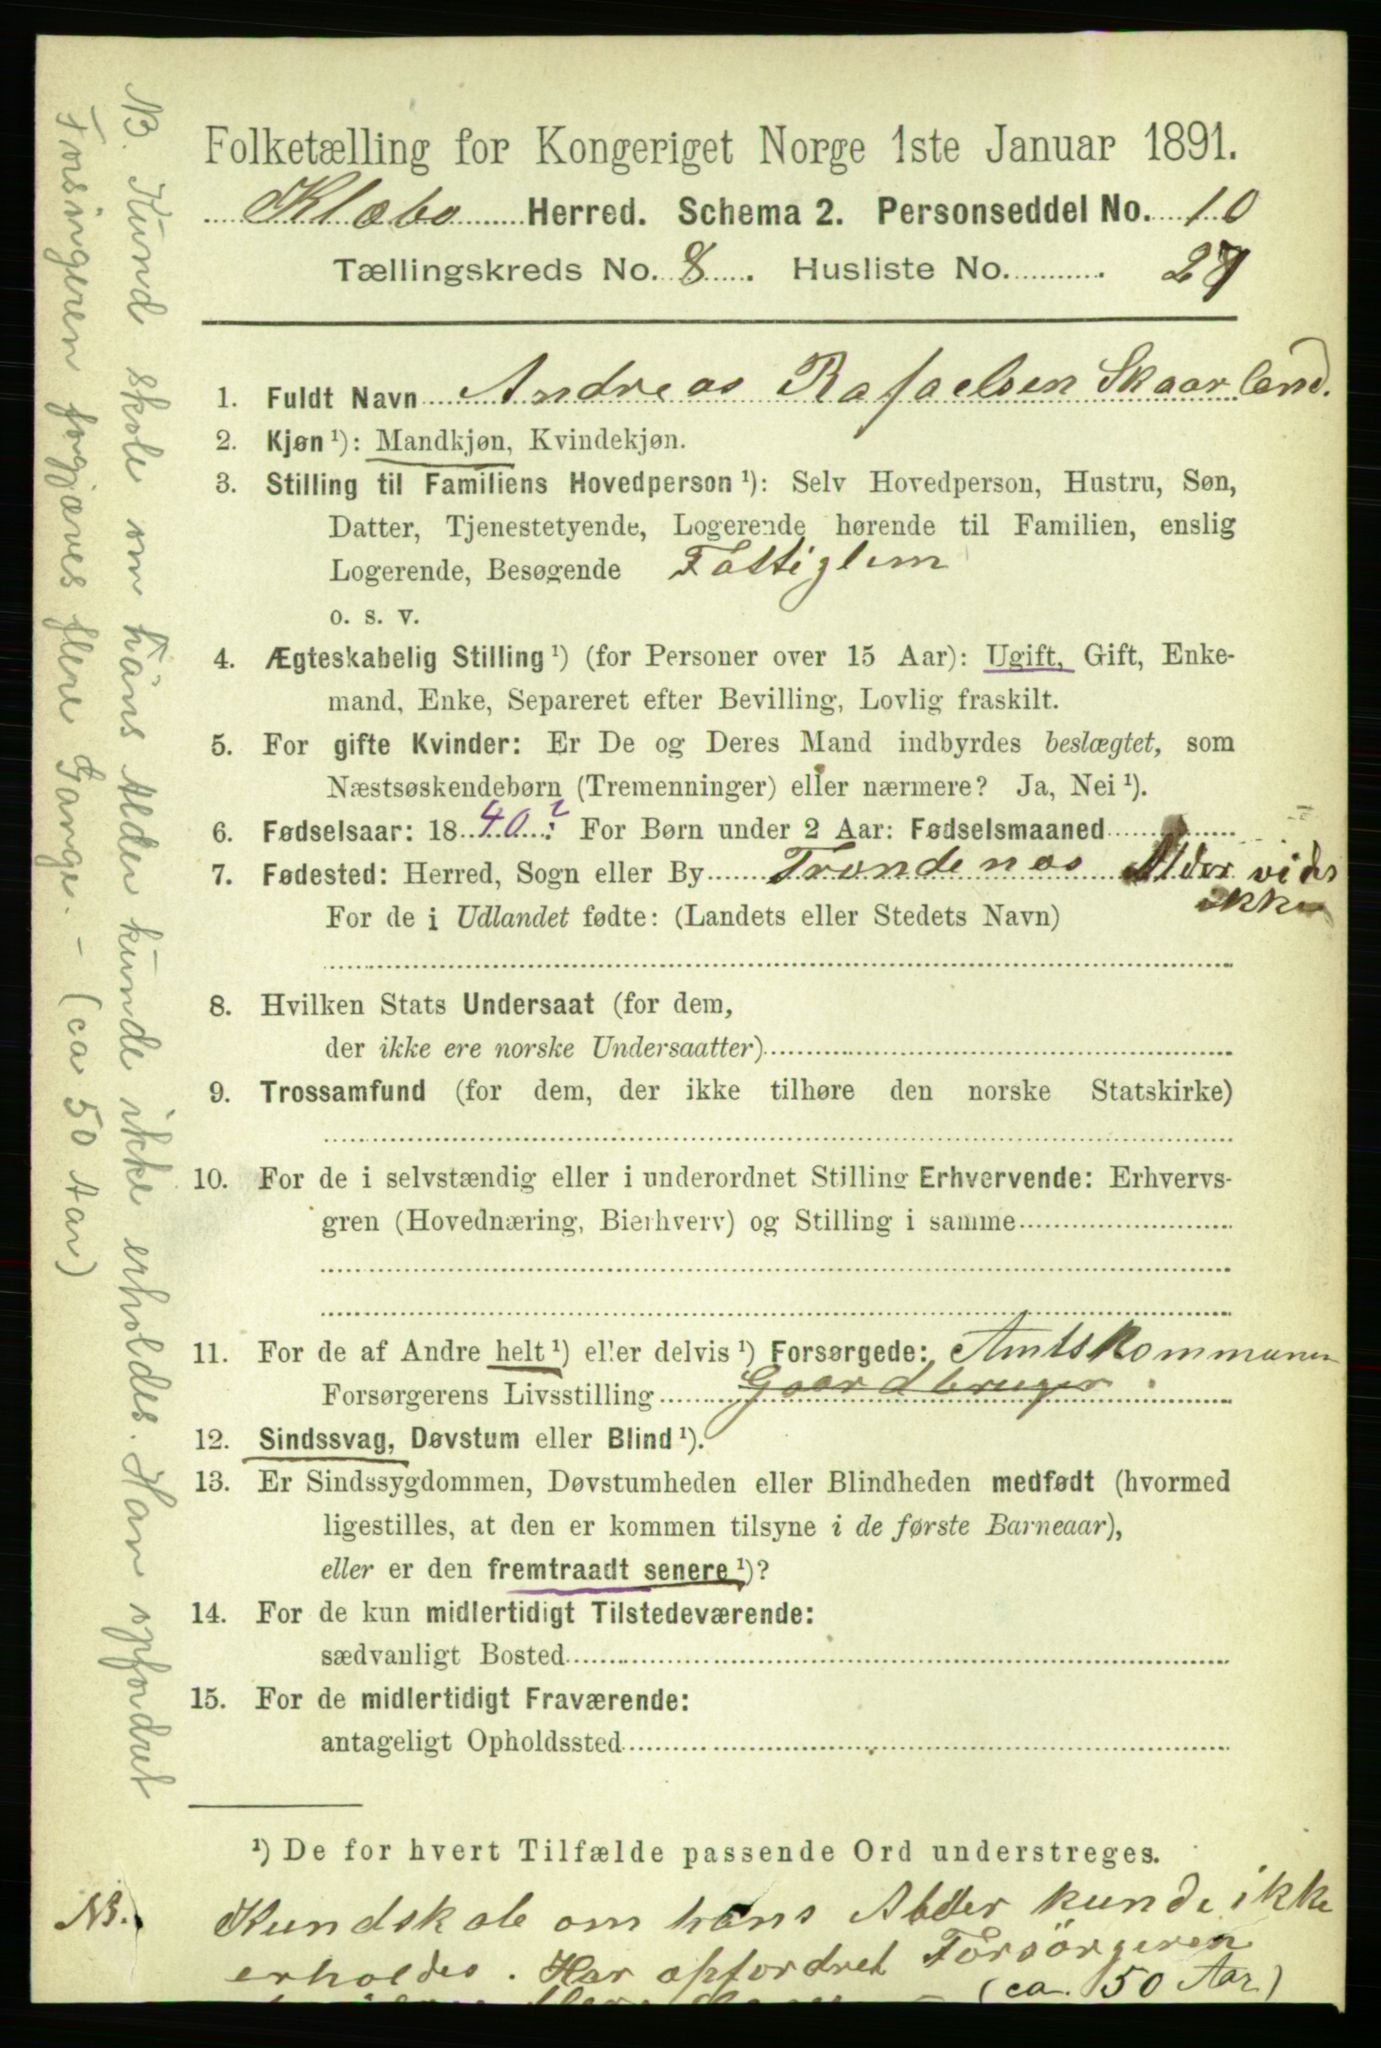 Folketælling for Kongeriget Norge 1ste Januar 1891.
Klæbo Herred. Schema 2. Personseddel No. 10
Tællingskreds No. 8. Husliste No. 27
1. Fuldt Navn Andreas Rafaelsen Skaarland.
2. Kjøn ¹): Mandkjøn, Kvindekjøn.
3. Stilling til Familiens Hovedperson ¹): Selv Hovedperson, Hustru, Søn,
Datter, Tjenestetyende, Logerende hørende til Familien, enslig
Logerende, Besøgende Fattiglem
o. s. v.
4. Ægteskabelig Stilling ¹) (for Personer over 15 Aar): Ugift, Gift, Enke-
mand, Enke, Separeret efter Bevilling, Lovlig fraskilt.
5. For gifte Kvinder: Er De og Deres Mand indbyrdes beslægtet, som
Næstsøskendebørn (Tremenninger) eller nærmere? Ja, Nei ¹).
6. Fødselsaar: 1840? For Børn under 2 Aar: Fødselsmaaned
7. Fødested: Herred, Sogn eller By Trondenæs Alder vides
ikke
For de i Udlandet fødte: (Landets eller Stedets Navn)
8. Hvilken Stats Undersaat (for dem,
der ikke ere norske Undersaatter)
9. Trossamfund (for dem, der ikke tilhøre den norske Statskirke)
10. For de i selvstændig eller i underordnet Stilling Erhvervende: Erhvervs-
gren (Hovednæring, Bierhverv) og Stilling i samme
11. For de af Andre helt ¹) eller delvis ¹) Forsørgede: Amtskommunen
Forsørgerens Livsstilling Gaardbruger
12. Sindssvag, Døvstum eller Blind ¹).
13. Er Sindssygdommen, Døvstumheden eller Blindheden medfødt (hvormed
ligestilles, at den er kommen tilsyne i de første Barneaar),
eller er den fremtraadt senere ¹)?
14. For de kun midlertidigt Tilstedeværende:
sædvanligt Bosted
15. For de midlertidigt Fraværende:
antageligt Opholdssted
¹) De for hvert Tilfælde passende Ord understreges.
NB. Kundskab om hans Alder kunde ikke
erholdes. Har opfordret Forsörgeren
(ca. 50 Aar)
NB. Kundskab om hans Alder kunde ikke erholdes. Har opfordret
Forsörgeren forgjæves flere Gange. – (ca 50 Aar)